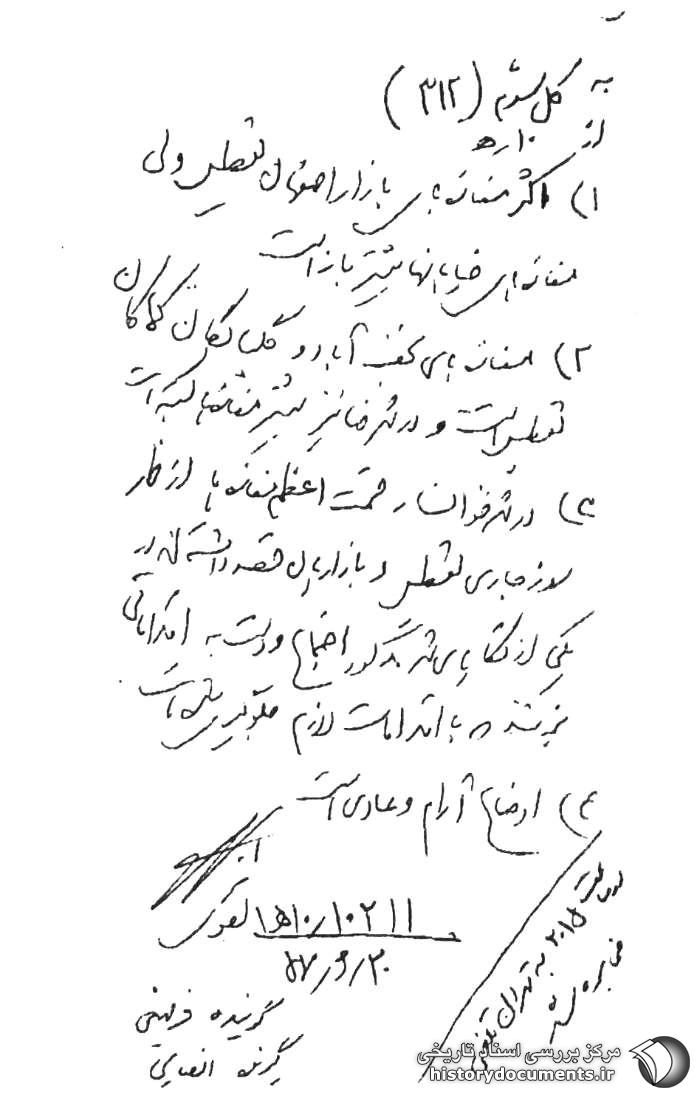 به کل سوم (۳۱۲)
از ۱۰ ه‍
۱) اکثر مغازه های بازار اصفهان تعطیل ولی
مغازه های خیابانها بیشتر باز است
۲) مغازه های نجف آباد و گلپایگان کماکان
تعطیل است و در شهرضا نیز بیشتر مغازه ها بسته است
۳) در شهر خوانسار قسمت اعظم مغازه ها از
روز جاری تعطیل و بازاریان قصد داشته اند در
یکی از نقاط شهر مذکور اجتماع و دست به اقداماتی
بزنند که با اقدامات لازم جلوگیری شده است
۴) اوضاع آرام و عادی است
۱۰۲۱۱/۱۰ه‍ ۱
۵۷/۶/۲۰
گوینده
گیرنده انصاری
در ساعت ۲۰۱۵ به تهران تلفنی
مخابره شد
مرکز بررسی اسناد تاریخی
historydocuments.ir